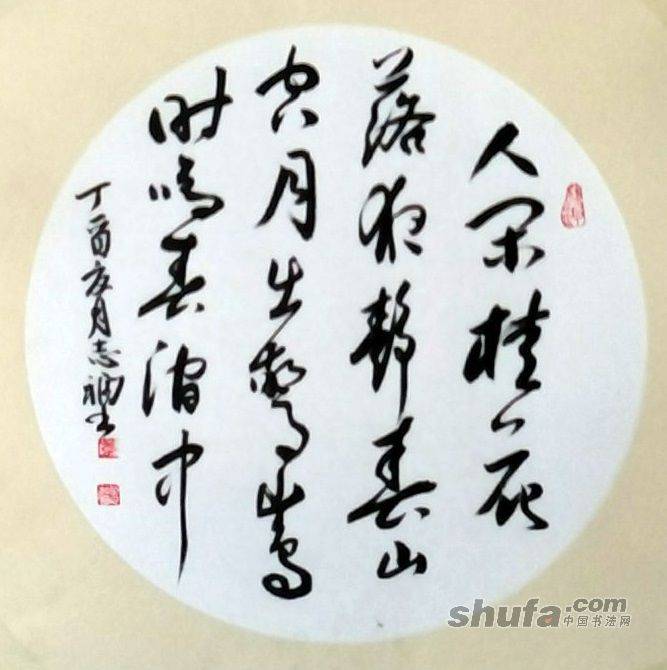 人闲桂花
落夜静春山
空月出驚山鸟
时鸣春涧中
丁酉月志书
shufa.com
中国书法网